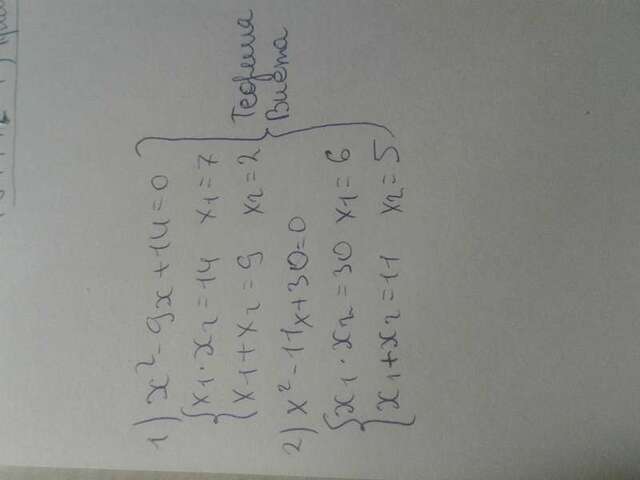 1) x² - 9x + 14 = 0
{ x₁ · x₂ = 14 x₁ = 7
{ x₁ + x₂ = 9 x₂ = 2
Теорема
Виета
2) x² - 11x + 30 = 0
{ x₁ · x₂ = 30 x₁ = 6
{ x₁ + x₂ = 11 x₂ = 5